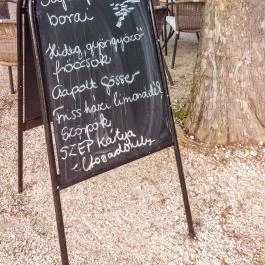 borai
Hideg, gyöngyöző
fröccsök
Csapolt Gösser
Friss házi limonádé!
Szörpök
SZÉP Kártya
- Elfogadóhely